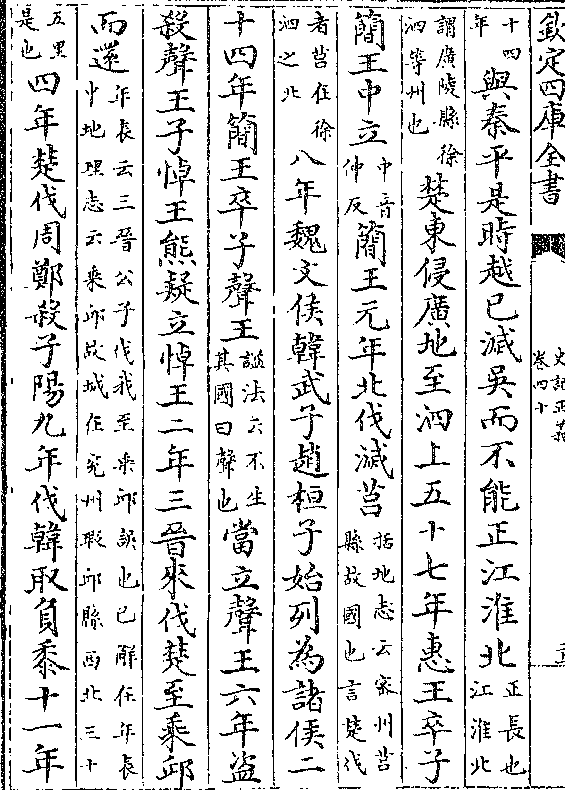 欽定四庫全書
史記正義
卷四十
十四年與秦平是時越已滅吳而不能正江淮北正長也江淮北
謂廣陵縣徐泗等州也楚東侵廣地至泗上五十七年惠王卒子
簡王中立中音仲反簡王元年北伐滅莒括地志云密州莒縣故國也言楚伐
者莒在徐泗之北八年魏文侯韓武子趙桓子始列為諸侯二
十四年簡王卒子聲王諡法云不生其國曰聲也當立聲王六年盗
殺聲王子悼王熊疑立悼王二年三晉來伐楚至乗邱
而還年表云三晉公子伐我至乗邱誤也已解在年表中地理志云乗邱故城在兖州瑕邱縣西北三十
五里是也四年楚伐周鄭殺子陽九年伐韓取負黍十一年